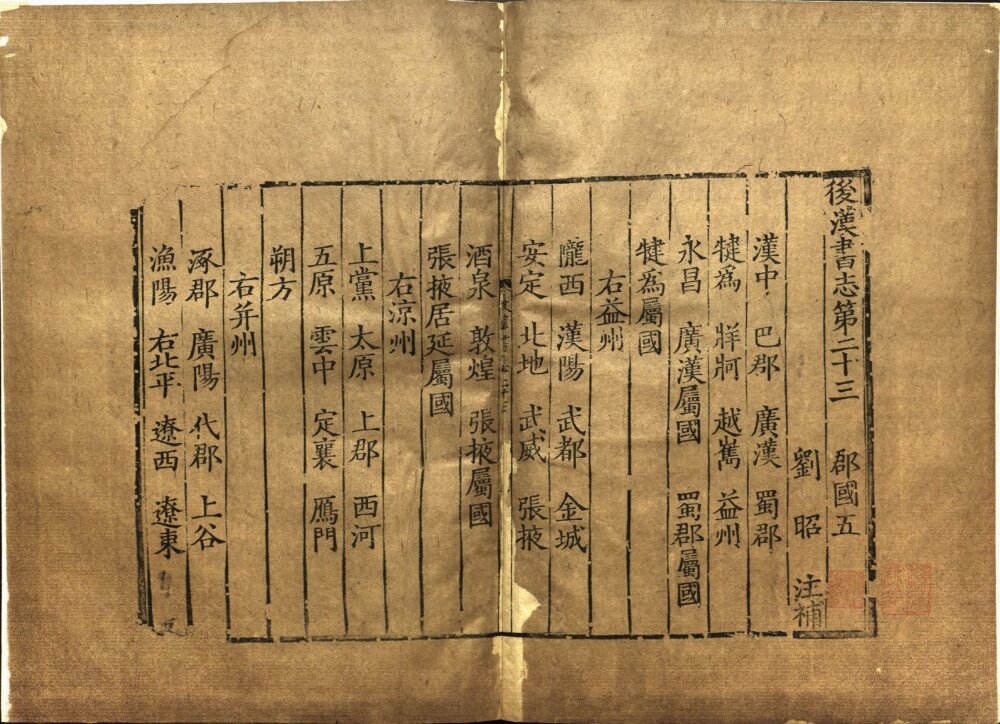 後漢書志第二十三　郡國五
劉昭　注補
漢中　巴郡　廣漢　蜀郡
犍爲　牂牁　越巂　益州
永昌　廣漢屬國　蜀郡屬國
犍爲屬國
右益州
隴西　漢陽　武都　金城
安定　北地　武威　張掖
酒泉　敦煌　張掖屬國
張掖居延屬國
右涼州
上黨　太原　上郡　西河
五原　雲中　定襄　鴈門
朔方
右并州
涿郡　廣陽　代郡　上谷
漁陽　右北平　遼西　遼東